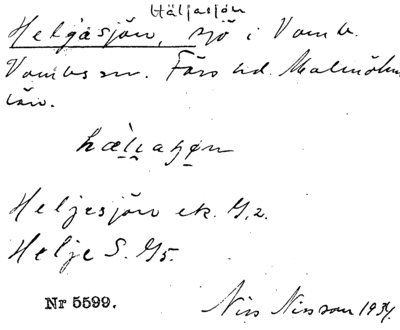 Häljasjön
Helgasjön, sjö i Vomb.
Vombs sn. Färs hd. Malmöhus
län.
Heljesjön ek. G2.
Helje S. G5.
Nr 5599.
Nils Nilsson 1934.